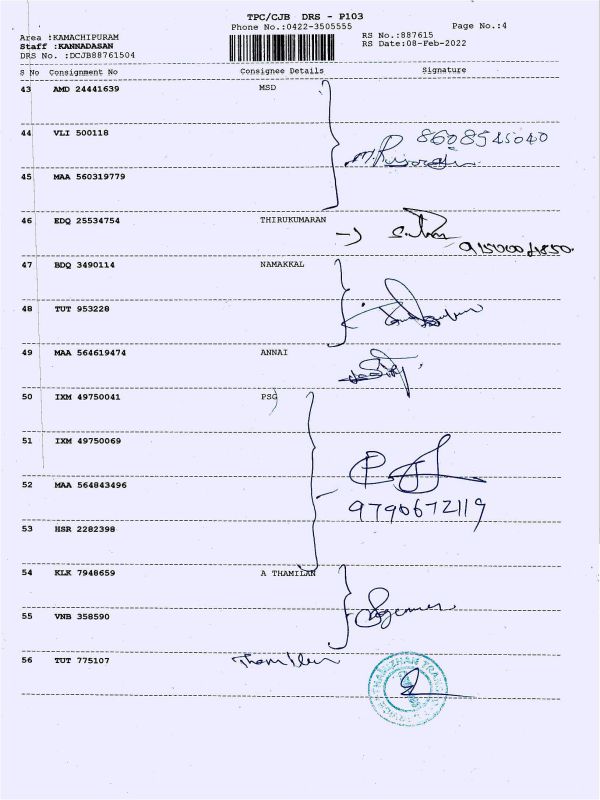 TPC/CJB DRS - P103
Phone No.:0422-3505555
Page No.:4
Area :KAMACHIPURAM
Staff :KANNADASAN
DRS No. :DCJB88761504
RS No.:887615
RS Date:08-Feb-2022
S No Consignment No Consignee Details Signature
43 AMD 24441639 MSD
44 VLI 500118
8608545040
45 MAA 560319779
46 EDQ 25534754 THIRUKUMARAN
47 BDQ 3490114 NAMAKKAL
48 TUT 953228
49 MAA 564619474 ANNAI
50 IXM 49750041 PSG
51 IXM 49750069
52 MAA 564843496
9790672119
53 HSR 2282398
54 KLK 7948659 A THAMILAN
55 VNB 358590
56 TUT 775107